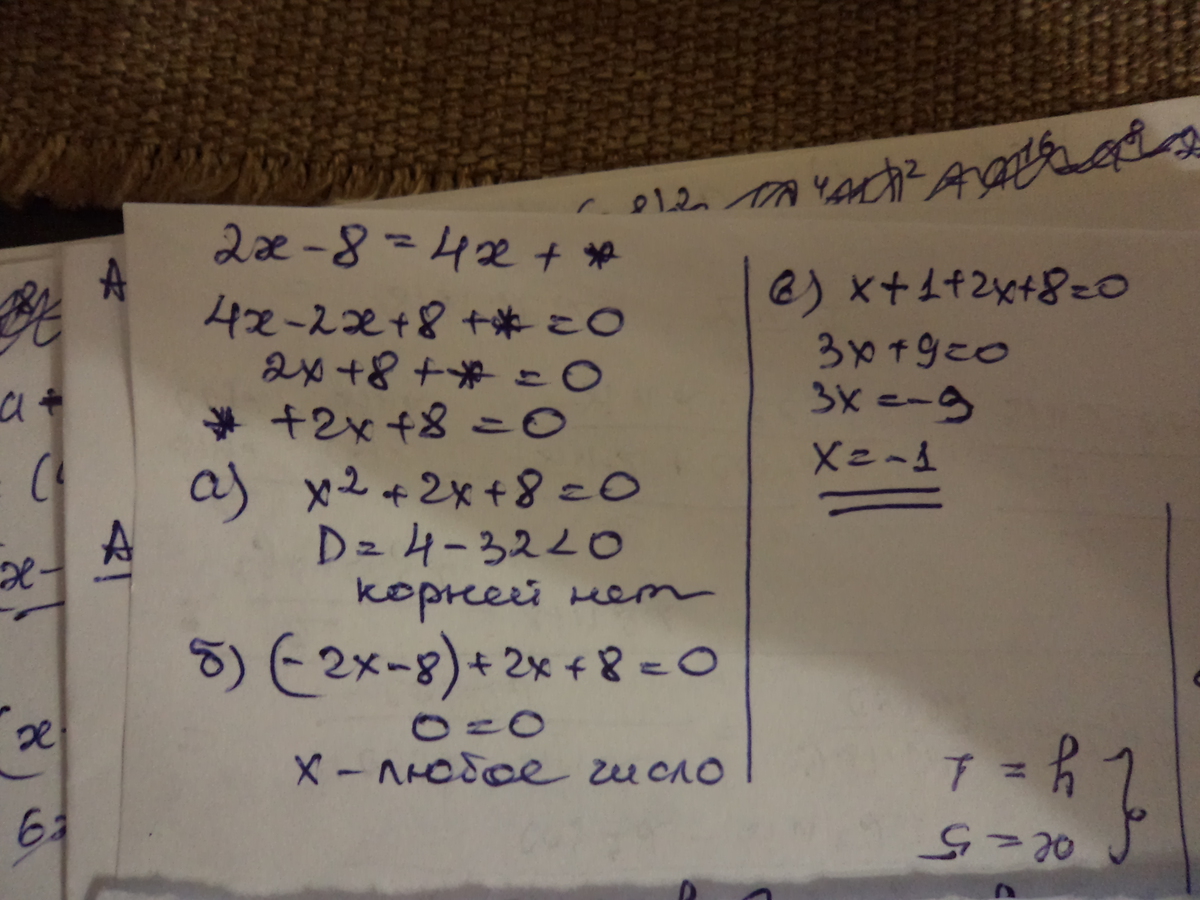 2x-8=4x+*
4x-2x+8+*=0
2x+8+*=0
*+2x+8=0
а) x²+2x+8=0
D=4-32<0
корней нет
б) (-2x-8)+2x+8=0
0=0
x-любое число
в) x+1+2x+8=0
3x+9=0
3x=-9
x=-1
y=1
x=5
A
A